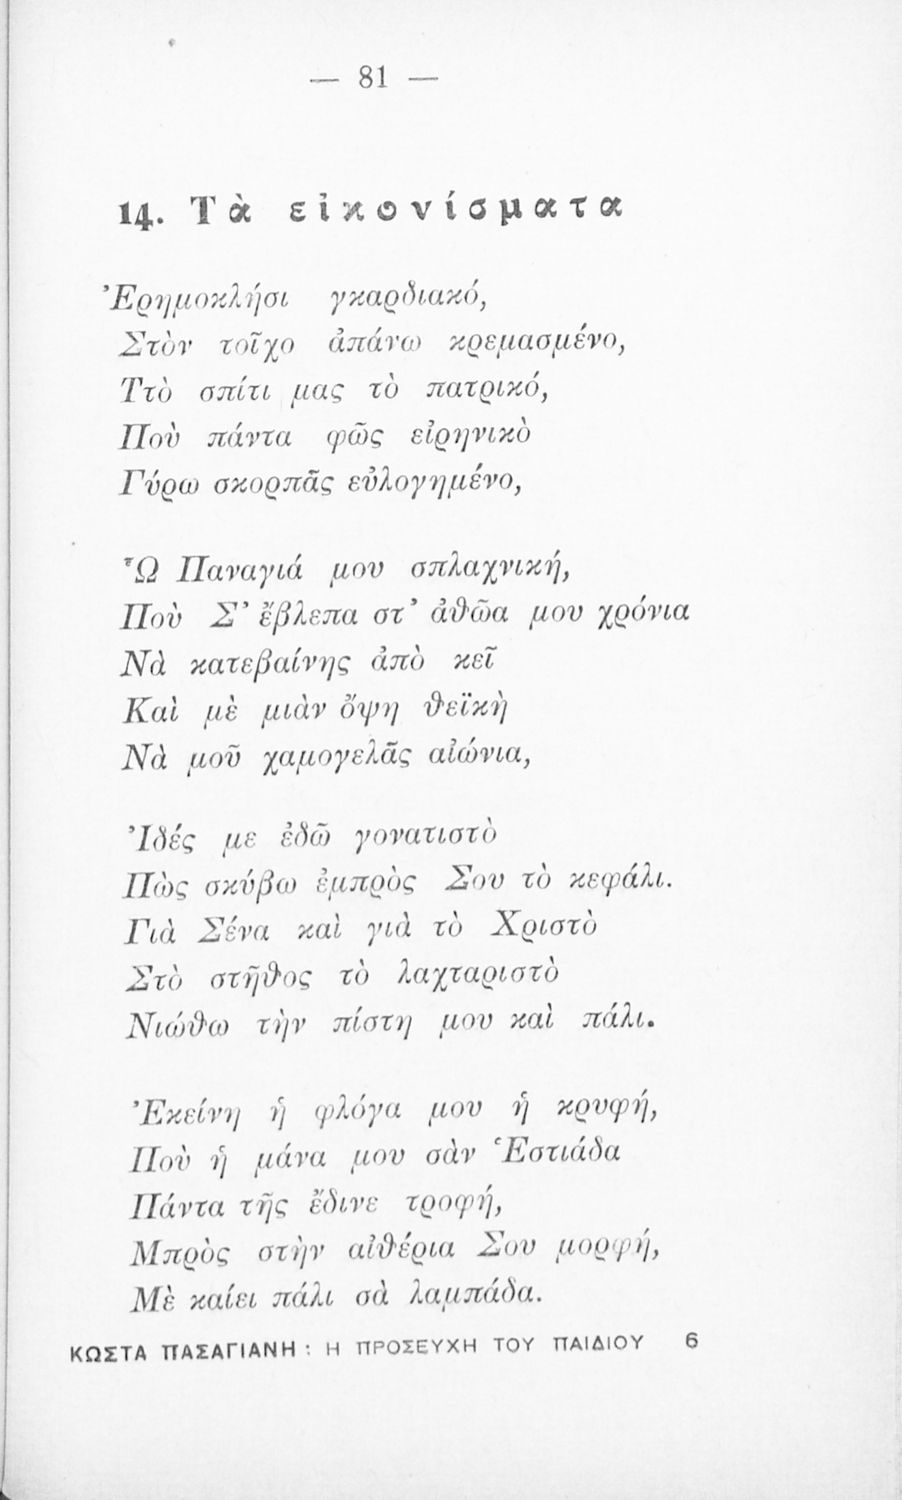 — 81 —
14. Τὰ εἰκονίσματα
Ἐρημοκλήσι γκαρδιακό,
Στὸν τοῖχο ἀπάνω κρεμασμένο,
Ττὸ σπίτι μας τὸ πατρικό,
Ποὺ πάντα φῶς εἰρηνικὸ
Γύρω σκορπᾶς εὐλογημένο,
Ὦ Παναγιά μου σπλαχνική,
Ποὺ Σ' ἔβλεπα στ' ἀθῶα μου χρόνια
Νὰ κατεβαίνης ἀπὸ κεῖ
Καὶ μὲ μιὰν ὄψη θεϊκὴ
Νὰ μοῦ χαμογελᾶς αἰώνια,
Ἰδές με ἐδῶ γονατιστὸ
Πὼς σκύβω ἐμπρὸς Σου τὸ κεφάλι.
Γιὰ Σένα καὶ γιὰ τὸ Χριστὸ
Στὸ στῆθος τὸ λαχταριστὸ
Νιώθω τὴν πίστη μου καὶ πάλι.
Ἐκείνη ἡ φλόγα μου ἡ κρυφή,
Ποὺ ἡ μάνα μου σὰν Ἑστιάδα
Πάντα τῆς ἔδινε τροφή,
Μπρὸς στὴν αἰθέρια Σου μορφή,
Μὲ καίει πάλι σὰ λαμπάδα.
ΚΩΣΤΑ ΠΑΣΑΓΙΑΝΗ : Η ΠΡΟΣΕΥΧΗ ΤΟΥ ΠΑΙΔΙΟΥ 6